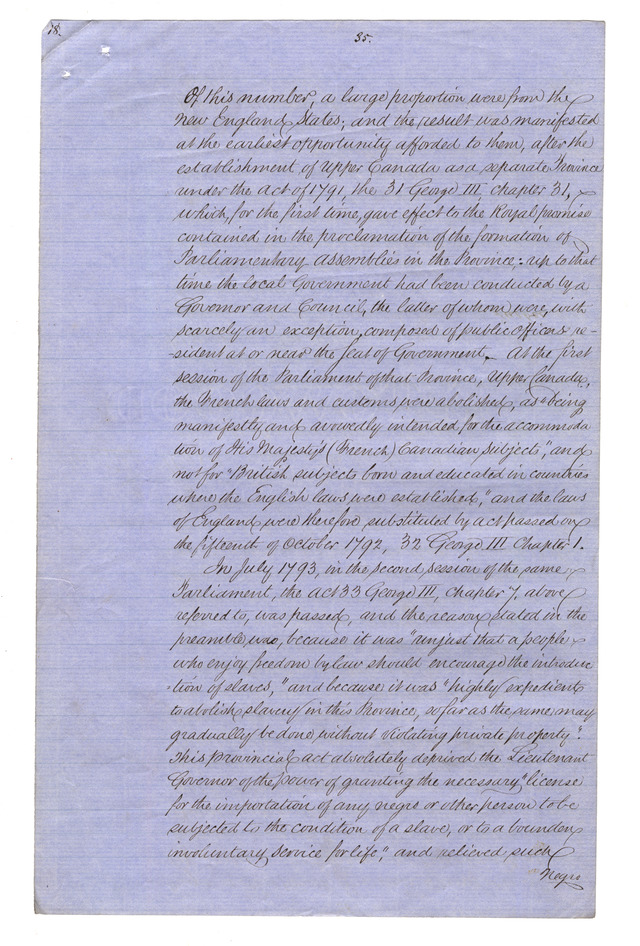 18.
35.
Of this number, a large proportion were from the
New England States; and the result was manifested
at the earliest opportunity afforded to them, after the
establishment of Upper Canada as a separate Province
under the act of 1791, the 31 George III, chapter 31,
which, for the first time, gave effect to the Royal promise
contained in the proclamation of the formation of
Parliamentary assemblies in the Province; up to that
time the local Government had been conducted by a
Governor and Council, the latter of whom were, with
scarcely an exception, composed of public officers re-
-sident at or near the Seat of Government. At the first
session of the Parliament of that Province, Upper Canada,
the French laws and customs were abolished, as "being
manifestly and avowedly intended for the accommoda
tion of His Majesty's (French) Canadian subjects", and
not for "British subjects born and educated in countries
where the English laws were established," and the laws
of England were therefore substituted by act passed on
the fifteenth of October 1792, 32 George III Chapter 1.
In July 1793, in the second session of the same
Parliament, the act 33 George III, chapter 7, above
referred to, was passed, and the reason stated in the
preamble was, because it was "unjust that a people
who enjoy freedom by law should encourage the introduc
-tion of slaves," and because it was "highly expedient
to abolish slavery in this Province, so far as the same may
gradually be done without violating private property".
This Provincial act absolutely deprived the Lieutenant
Governor of the power of granting the necessary "license
for the importation of any negro or other person to be
subjected to the condition of a slave, or to a bounden
involuntary service for life", and relieved such
Negro